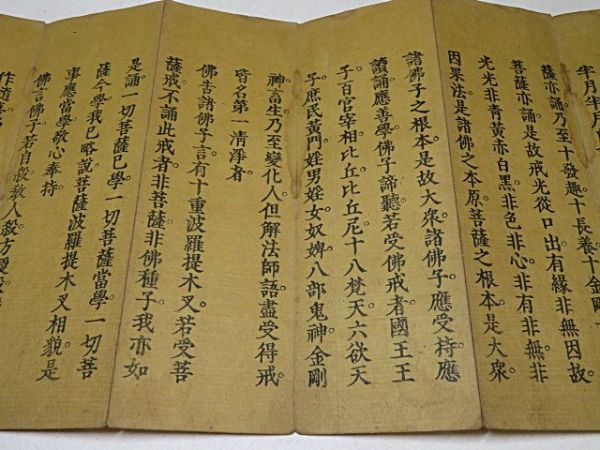 半月半月
薩亦誦乃至十發趣十長養十金剛
菩薩亦誦是故戒光從口出有緣非無因故
光光非青黃赤白黑非色非心非有非無非
因果法是諸佛之本原菩薩之根本是大衆
諸佛子之根本是故大衆諸佛子應受持應
讀誦應善學佛子諦聽若受佛戒者國王王
子百官宰相比丘比丘尼十八梵天六欲天
子庶民黃門婬男婬女奴婢八部鬼神金剛
神畜生乃至變化人但解法師語盡受得戒
皆名第一清淨者
佛告諸佛子言有十重波羅提木叉若受菩
薩戒不誦此戒者非菩薩非佛種子我亦如
是誦一切菩薩已學一切菩薩當學一切菩
薩今學我已略說菩薩波羅提木叉相貌是
事應當學敬心奉持
佛言佛子若自殺教人殺方便
作隨喜